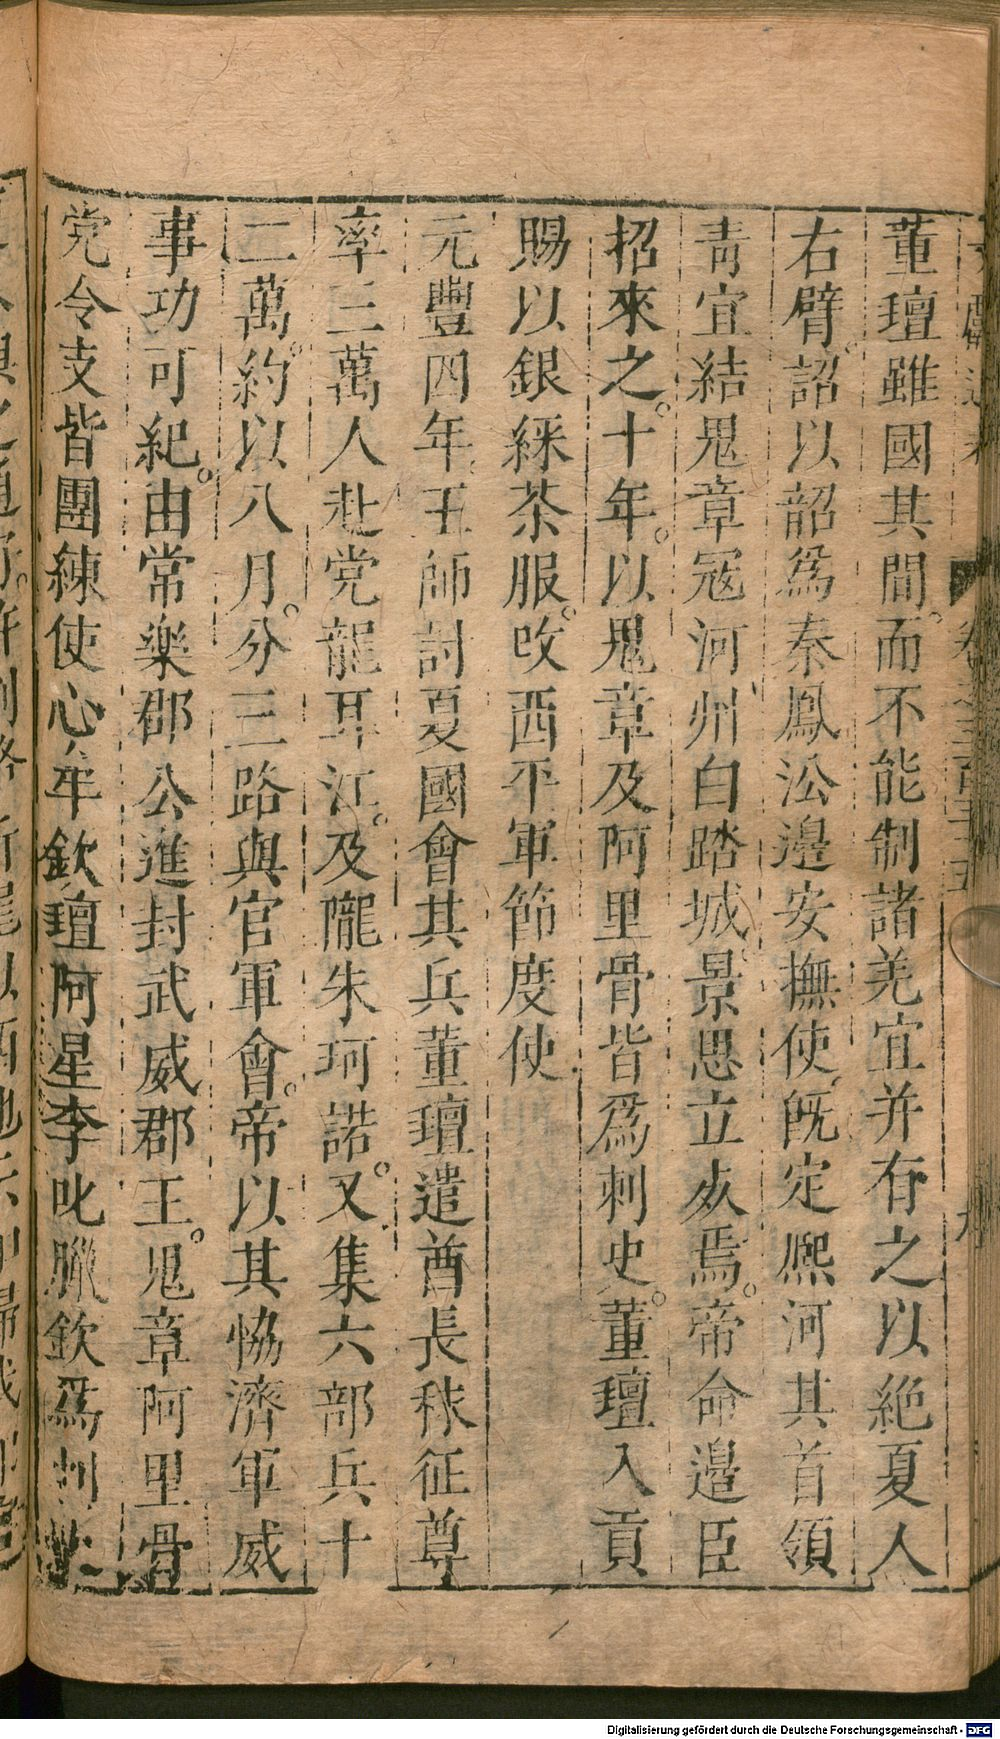 董氊雖國其間。而不能制諸羌宜并有之以絶夏人
右臂。詔以韶爲秦鳳㳂邊安撫使。旣定熈河其首領
青宜結鬼章冦河州白踏城。景思立死焉。帝命邊臣
招來之。十年。以鬼章及阿里骨皆爲刺史。董氊入貢
賜以銀綵茶服。改西平軍節度使
元豐四年。王師討夏國會其兵董氊遣酋長秣征尊
率三萬人赴党龍耳江。及隴朱珂諾。又集六部兵十
二萬。約以八月。分三路與官軍會。帝以其恊濟軍威
事功可紀。由常樂郡公進封武威郡王。鬼章阿里骨
党令支皆團練使心牟欽氊阿星李叱臘欽爲刺史
Digitalisierung gefördert durch die Deutsche Forschungsgemeinschaft - DFG